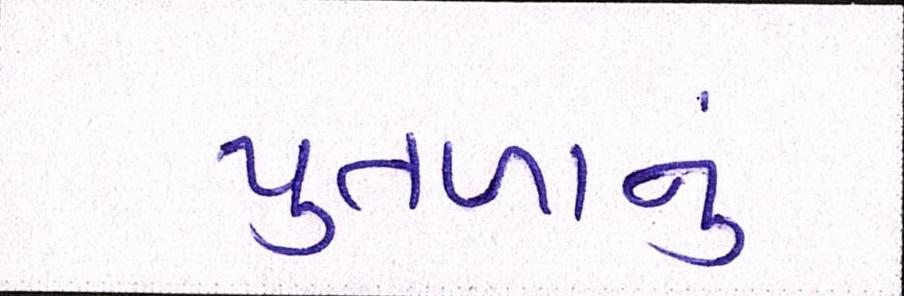 પુતળાનું